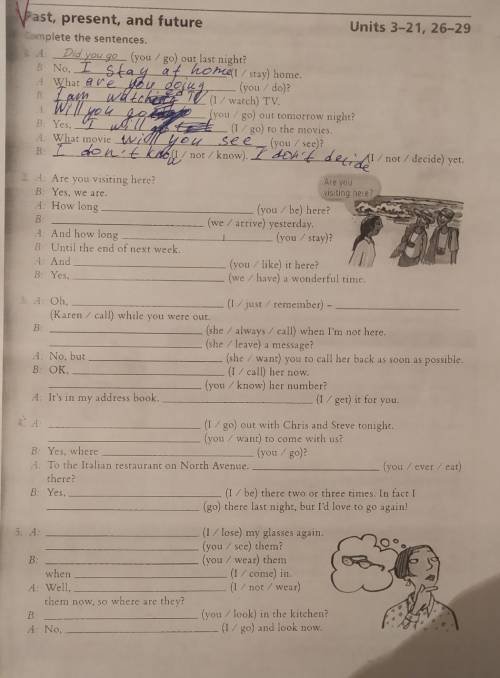 Past, present, and future
Units 3–21, 26–29
Complete the sentences.
A: Did you go (you / go) out last night?
B: No, I stay at home (I / stay) home.
A: What are you doing (you / do)?
B: I am watching TV (I / watch) TV.
A: Will you go (you / go) out tomorrow night?
B: Yes, I will (I / go) to the movies.
A: What movie will you see (you / see)?
B: I don't know (I / not / know). I don't decide (I / not / decide) yet.
2. A: Are you visiting here?
Are you
visiting here?
B: Yes, we are.
A: How long (you / be) here?
B: (we / arrive) yesterday.
A: And how long (you / stay)?
B: Until the end of next week.
A: And (you / like) it here?
B: Yes, (we / have) a wonderful time.
3. A: Oh, (I / just / remember) –
(Karen / call) while you were out.
B: (she / always / call) when I'm not here.
(she / leave) a message?
A: No, but (she / want) you to call her back as soon as possible.
B: OK, (I / call) her now.
(you / know) her number?
A: It's in my address book. (I / get) it for you.
4. A: (I / go) out with Chris and Steve tonight.
(you / want) to come with us?
B: Yes, where (you / go)?
A: To the Italian restaurant on North Avenue. (you / ever / eat)
there?
B: Yes, (I / be) there two or three times. In fact I
(go) there last night, but I'd love to go again!
5. A: (I / lose) my glasses again.
(you / see) them?
B: (you / wear) them
when (I / come) in.
A: Well, (I / not / wear)
them now, so where are they?
B: (you / look) in the kitchen?
A: No, (I / go) and look now.